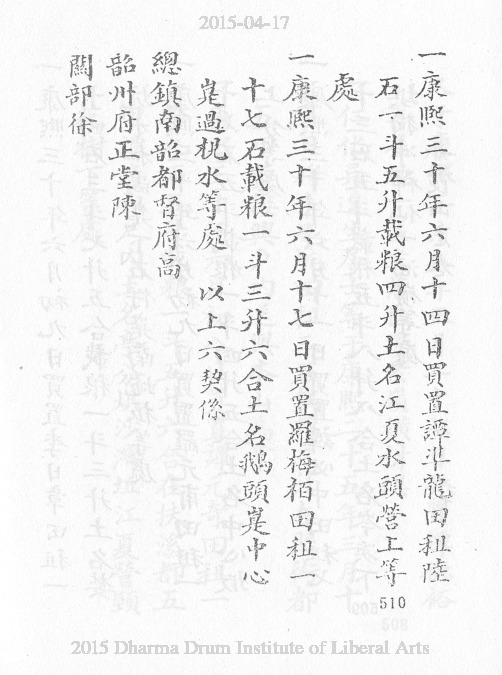 2015-04-17
一康熙三十年六月十四日買置譚準龍田租陸
石一斗五升載粮四升土名江夏水頭營上等
處
一康熙三十年六月十七日買置羅梅栢田租一
十七石載粮一斗三升六合土名鵝頭嵬中心
嵬過枧水等處 以上六契係
總鎮南韶都督府高
韶州府正堂陳
關部徐
510
2015 Dharma Drum Institute of Liberal Arts